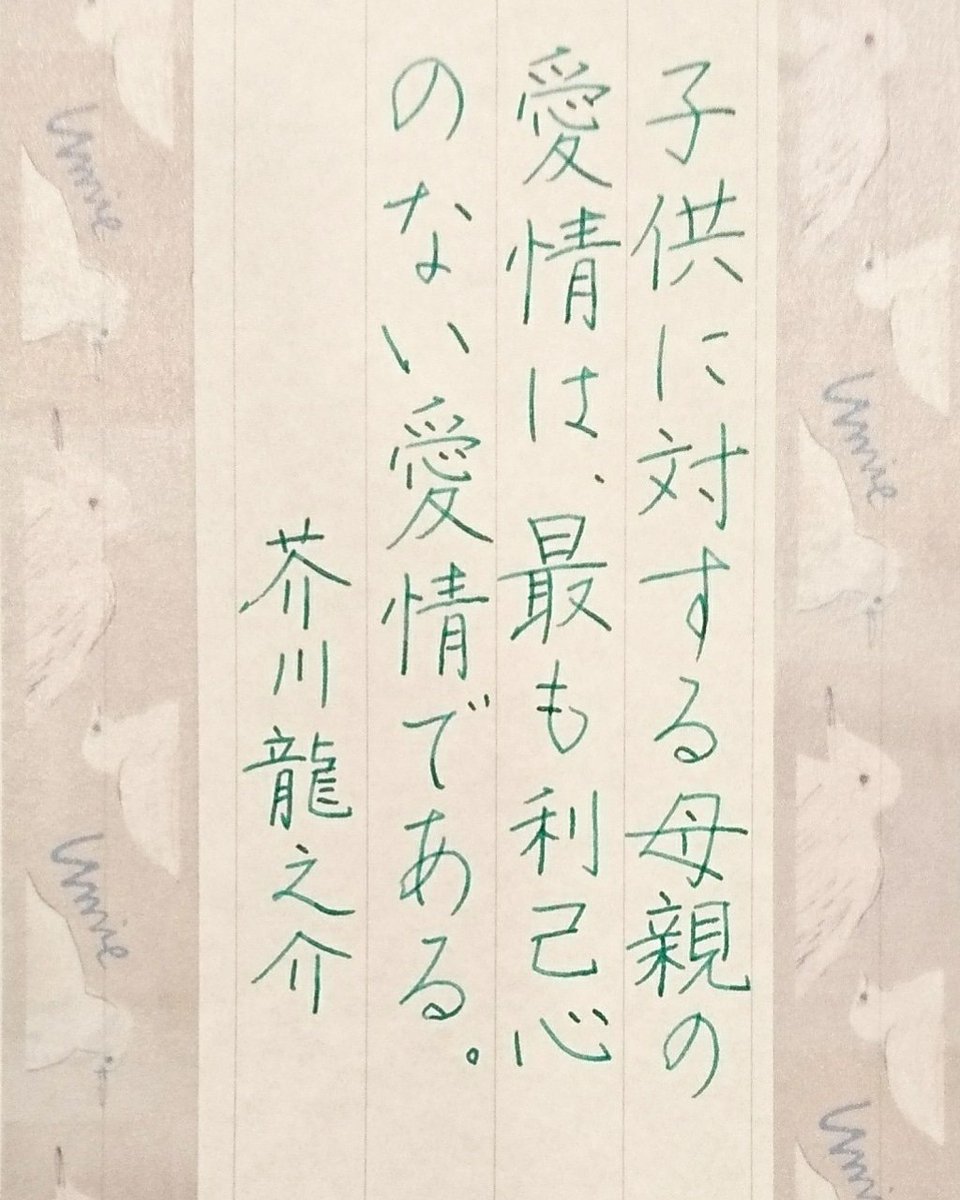 子供に対する母親の
愛情は、最も利己心
のない愛情である。
芥川龍之介